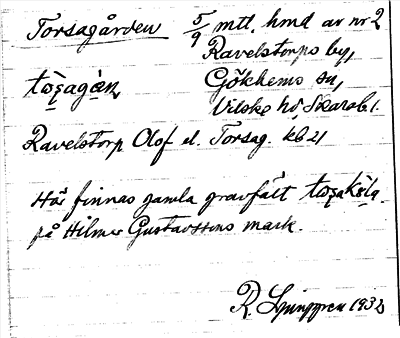 Torsagården 5/9 mtl. hmd av nr 2
Ravelstorps by,
Gökhems sn,
Vilske hd, Skarab l.
Ravelstorp Olof el. Torsag. kb 21
Här finnas gamla gravfält
på Hilmer Gustavssons mark.
R. Ljunggren 1932